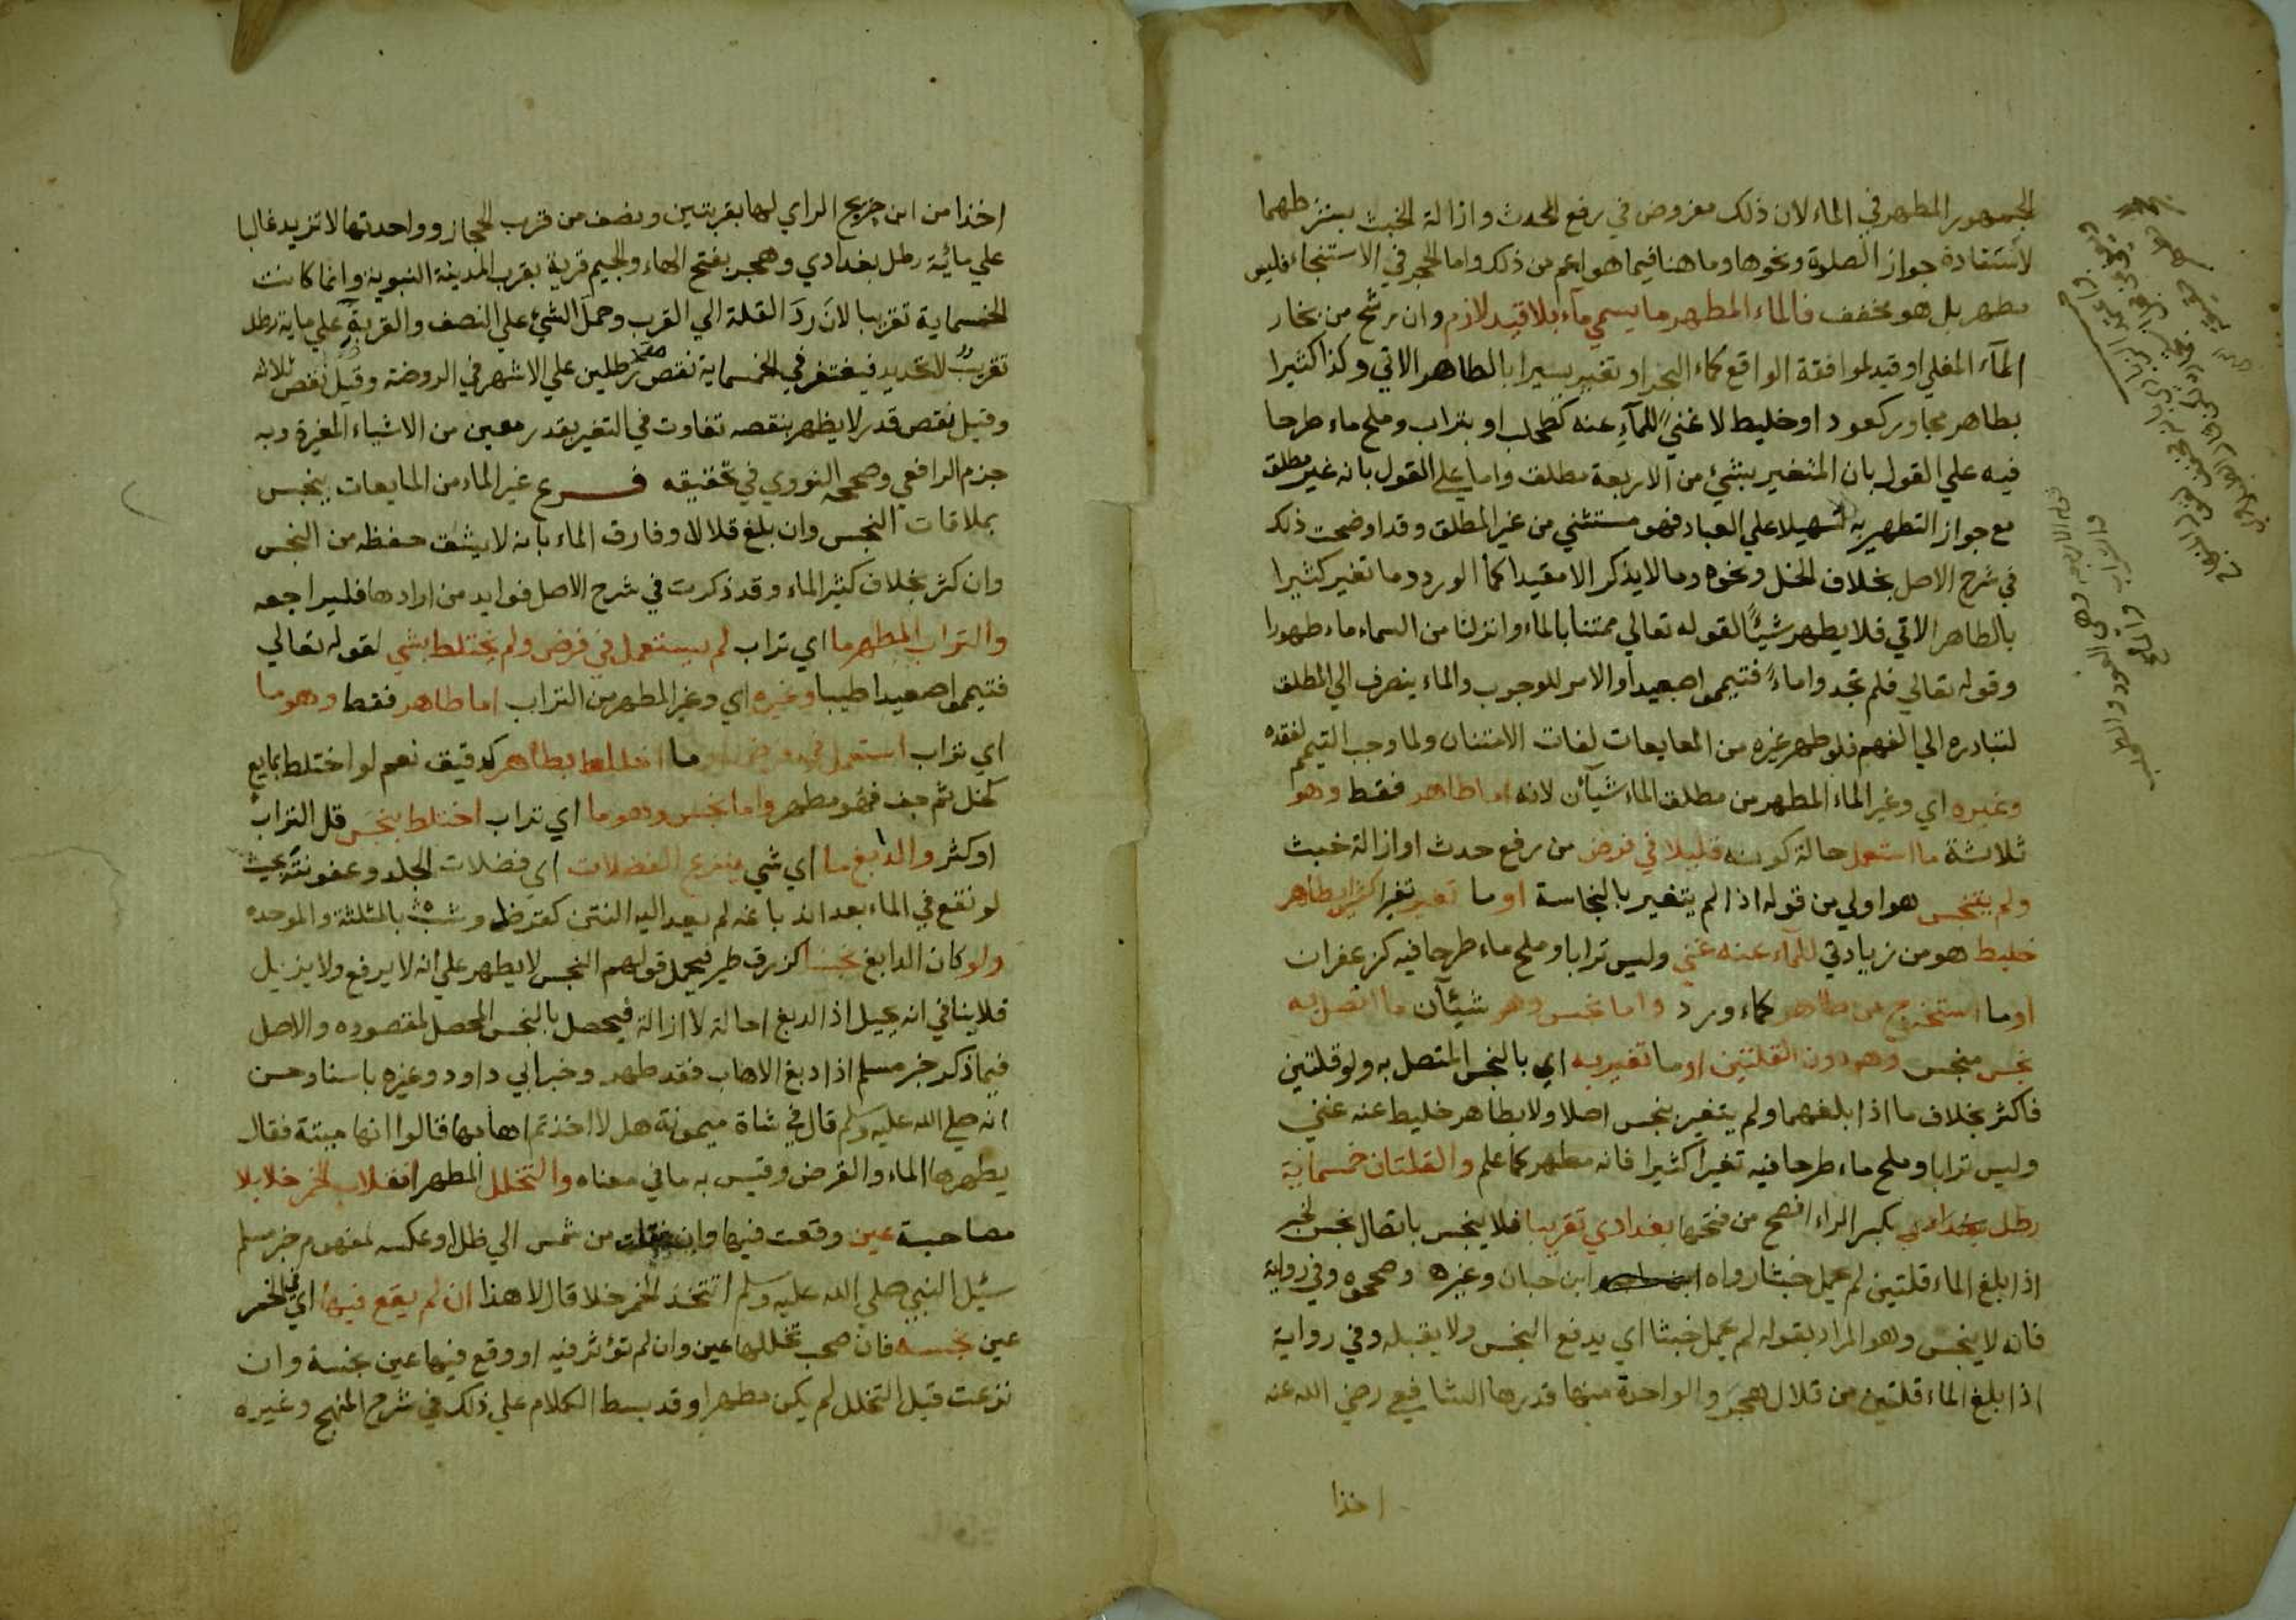 الجمهور المطهر في الماء لان ذلك مفروض في رفع الحدث وازالة الخبث بشرطهما
لاستفادة جواز الصلوة ونحوها وما هنا فيما هو اعم من ذلك واما الحجر في الاستنجاء فليس
مطهر بل هو مخفف فالماء المطهر ما يسمي مآء بلا قيد لازم وان رشح من بخار
المآء المغلي او قيد لموافقة الواقع كماء البحر او تغير يسيرا بالطاهر الاتي وكذا كثيرا
بطاهر مجاور كعود او خليط لا غني للمآء عنه كطحلب او بتراب وملح ماء طرحا
فيه علي القول بان المتغير بشيء من الاربعة مطلق واما علي القول بانه غير مطلق
مع جواز التطهير به تسهيلا علي العباد فهو مستثني من غير المطلق وقد اوضحت ذلك
في شرح الاصل بخلاف الخل ونحوه وما لا يذكر الا مقيدا كمآ الورد وما تغير كثيرا
بالطاهر الاتي فلا يطهر شيئًا لقوله تعالي ممتنا بالماء وانزلنا من السماء ماء طهورا
وقوله تعالي فلم تجدوا ماءً فتيمموا صعيدا والامر للوجوب والماء ينصرف الي المطلق
لتبادره الي الفهم فلو طهر غيره من المايعات لفات الامتنان ولما وجب التيمم لفقده
وغيره اي وغير الماء المطهر من مطلق الماء شيآن لانه اما طاهر فقط وهو
ثلاثة ما استعمل حالة كونه قليلا في فرض من رفع حدث او ازالة خبث
ولم يتنجس هو اولي من قوله اذا لم يتغير بالنجاسة او ما تغير تغيرا كثيرا بطاهر
خليط هو من زيادتي للمآء عنه غني وليس ترابا وملح ماء طرحا فيه كزعفران
او ما استخرج من طاهر كماء ورد واما نجس وهو شيئآن ما اتصل به
نجس منجس وهو دون القلتين او ما تغير به اي بالنجس المتصل به ولو قلتين
فاكثر بخلاف ما اذا بلغهما ولم يتغير بنجس اصلا ولا بطاهر خليط عنه غني
وليس ترابا وملح ماء طرحا فيه تغيرا كثيرا فانه مطهر كما علم والقلتان خمسماية
رطل بغدادي بكسر الراء افصح من فتحها بغدادي تقريبا فلا ينجس باتصال نجس لخبر
اذا بلغ الماء قلتين لم يحمل خبثا رواه ابن حبان وغيره وصححوه وفي رواية
فانه لا ينجس وهو المراد بقوله لم يحمل خبثا اي يدفع النجس ولا يقبله وفي رواية
اذا بلغ الماء قلتين من قلال هجر والواحدة منها قدرها الشافعي رضي الله عنه
اخذا
اخذا من ابن جريج الراي لها بقربتين ونصف من قرب الحجاز وواحدتها لا تزيد غالبا
علي مائية رطل بغدادي وهجر بفتح الهاء والجيم قرية بقرب المدينة النبوية وانما كانت
الخمسماية تقريبا لان ردَّ القلة الي القرب وحمل الشيء علي النصف والقربة علي ماية رطل
تقريب لا تحديد فيغتفر في الخمسماية نقص رطلين علي الاشهر في الروضة وقيل نقص ثلاثة
وقيل نقص قدر لا يظهر بنقصه تفاوت في التغير بقدر معين من الاشياء المغيرة وبه
جزم الرافعي وصححه النووي في تحقيقه فرع غير الماء من المايعات ينجس
بملاقات النجس وان بلغ قلالا وفارق الماء بانه لا يشق حفظه من النجس
وان كثر بخلاف كثير الماء وقد ذكرت في شرح الاصل فوايد من ارادها فليراجعه
والتراب المطهر ما اي تراب لم يستعمل في فرض ولم يختلط بشي لقوله تعالي
فتيمموا صعيدا طيبا وغيره اي وغير المطهر من التراب اما طاهر فقط وهو ما
اي تراب استعمل في فرض او ما اختلط بطاهر كدقيق نعم لو اختلط بمايع
كخل ثم جف فهو مطهر واما نجس وهو ما اي تراب اختلط بنجس قل التراب
او كثر والدابغ ما اي شي ينزع الفضلات اي فضلات الجلد وعفونته بحيث
لو نقع في الماء بعد اندباغه لم يعد اليه النتن كقرظ وشث بالمثلثة والموحده
ولو كان الدابغ نجسا كزرق طير فيحمل قولهم النجس لا يطهر علي انه لا يرفع ولا يزيل
فلا ينافي انه يحيل اذ الدبغ احالة لا ازالة فيحصل بالنجس المحصل لمقصوده والاصل
فيما ذكر خبر مسلم اذا دبغ الاهاب فقد طهر وخبر ابي داود وغيره باسناد حسن
انه صلي الله عليه وسلم قال في شاة ميمونة هل لا اخذتم اهابها قالوا انها ميتة فقال
يطهرها الماء والقرض وقيس به ما في معناه والتخلل المطهر انقلاب الخمر خلا بلا
مصاحبة عين وقعت فيها وان نقلت من شمس الي ظل او عكسه لمفهوم خبر مسلم
سئيل النبي صلي الله عليه وسلم اتتخذ الخمر خلا قال لا هذا ان لم يقع فيها اي في الخمر
عين نجسه فان صحب تخللها عين وان لم تؤثر فيه او وقع فيها عين نجسة وان
نزعت قبل التخلل لم يكن مطهرا وقد بسط الكلام علي ذلك في شرح المنهج وغيره